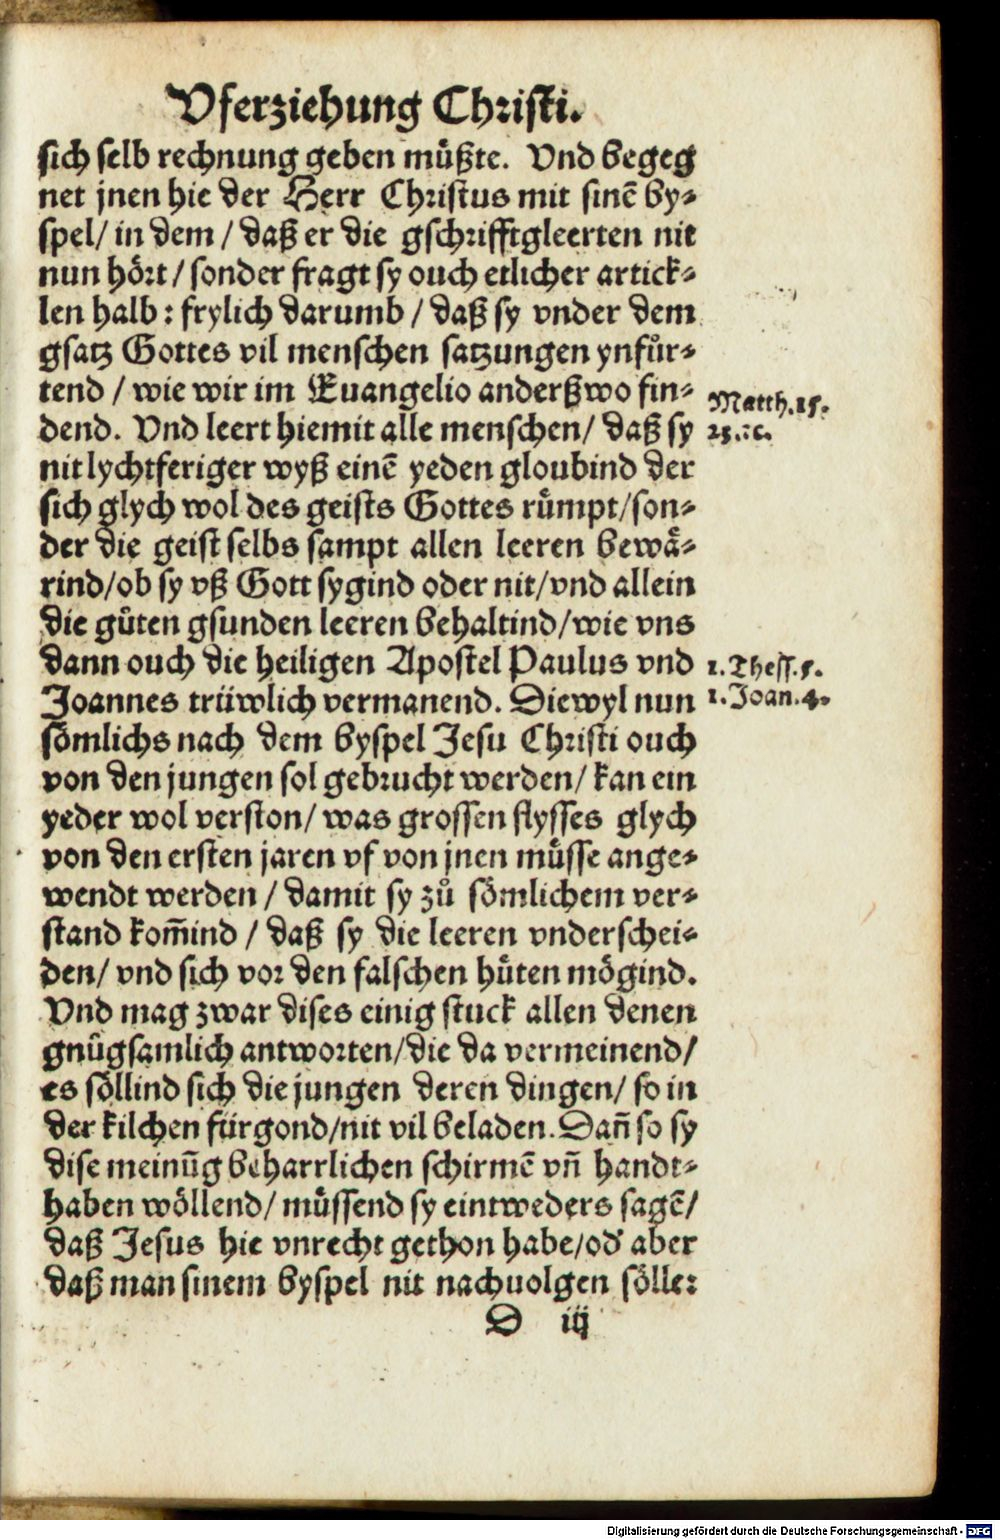 Vferziehung Christi.
sich selb rechnung geben müßte. Vnd begeg
net jnen hie der Herr Christus mit sinē by⸗
spel/ in dem / daß er die gschrifftgleerten nit
nun hört / sonder fragt sy ouch etlicher artick⸗
len halb : frylich darumb / daß sy vnder dem
gsatz Gottes vil menschen satzungen ynfůr⸗
tend / wie wir im Euangelio anderßwo fin⸗
dend. Vnd leert hiemit alle menschen/ daß sy
nit lychtferiger wyß einē yeden gloubind der
sich glych wol des geists Gottes růmpt/son⸗
der die geist selbs sampt allen leeren bewä⸗
rind/ob sy vß Gott sygind oder nit/vnd allein
die gůten gsunden leeren behaltind/wie vns
dann ouch die heiligen Apostel Paulus vnd
Joannes trüwlich vermanend. Diewyl nun
sömlichs nach dem byspel Jesu Christi ouch
von den jungen sol gebrucht werden/ kan ein
yeder wol verston/ was grossen flysses glych
von den ersten jaren vf von jnen můsse ange⸗
wendt werden / damit sy zů sömlichem ver⸗
stand kom̄ind / daß sy die leeren vnderschei⸗
den/ vnd sich vor den falschen hůten mögind.
Vnd mag zwar dises einig stuck allen denen
gnůgsamlich antworten/die da vermeinend/
es söllind sich die jungen deren dingen/ so in
der kilchen fürgond/nit vil beladen. Dañ so sy
dise meinūg beharrlichen schirmē vñ handt⸗
haben wöllend/ můssend sy eintweders sagē/
daß Jesus hie vnrecht gethon habe/od' aber
daß man sinem byspel nit nachuolgen sölle:
D iij
Matth.15.
23.⁊c.
1.Thess.5.
1.Joan.4.
Digitalisierung gefördert durch die Deutsche Forschungsgemeinschaft - DFG